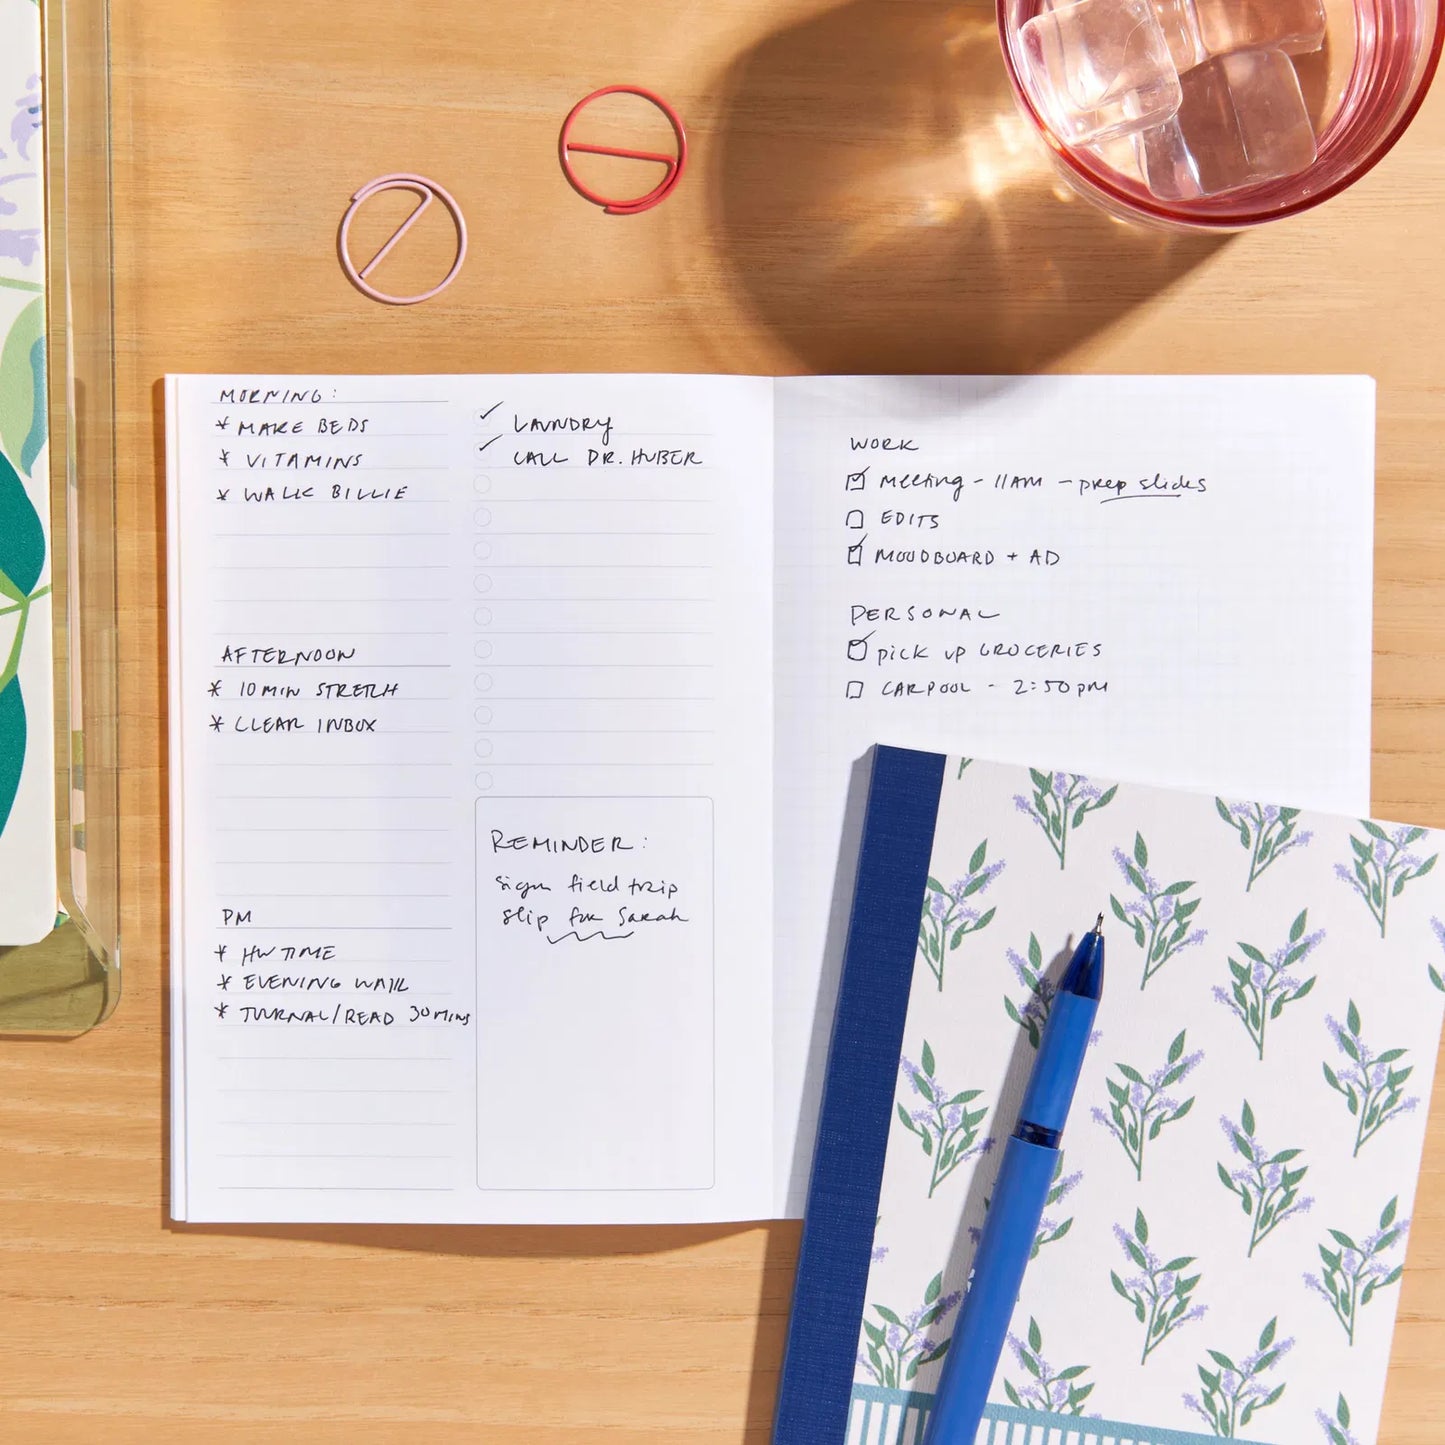 MORNING:
* MAKE BEDS
* VITAMINS
* WALK BILLIE
AFTERNOON
* 10 MIN STRETCH
* CLEAR INBOX
PM
* HW TIME
* EVENING WALK
* JOURNAL/READ 30 MINS
✓ LAUNDRY
✓ CALL DR. HUBER
REMINDER:
Sign field trip
slip for Sarah
WORK
☑ Meeting - 11AM - prep slides
☐ EDITS
☑ MOODBOARD + AD
PERSONAL
☑ PICK UP GROCERIES
☐ CARPOOL - 2:50 PM